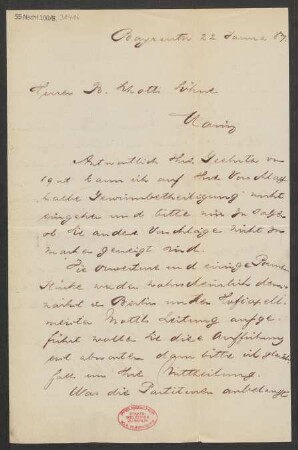 Bayreuth 22 Januar 87.
Herren B. Schott's Söhne
Mainz
Antwortlich Ihres Geehrten vom
19ct kann ich auf Ihre Vorschläge
halbe Gewinnbetheiligung nicht
eingehen und bitte mir zu sagen
ob Sie andere Vorschläge nicht zu
machen geneigt sind.
Die Ouverture und einige
Stücke werden wahrscheinlich dem-
nächst in Berlin unter Hofkapell-
meister Mottl Leitung aufge-
führt wollen Sie die Aufführung
erst abwarten dann bitte ich
falls um Ihre Mittheilung.
Was die Partituren anbelangt